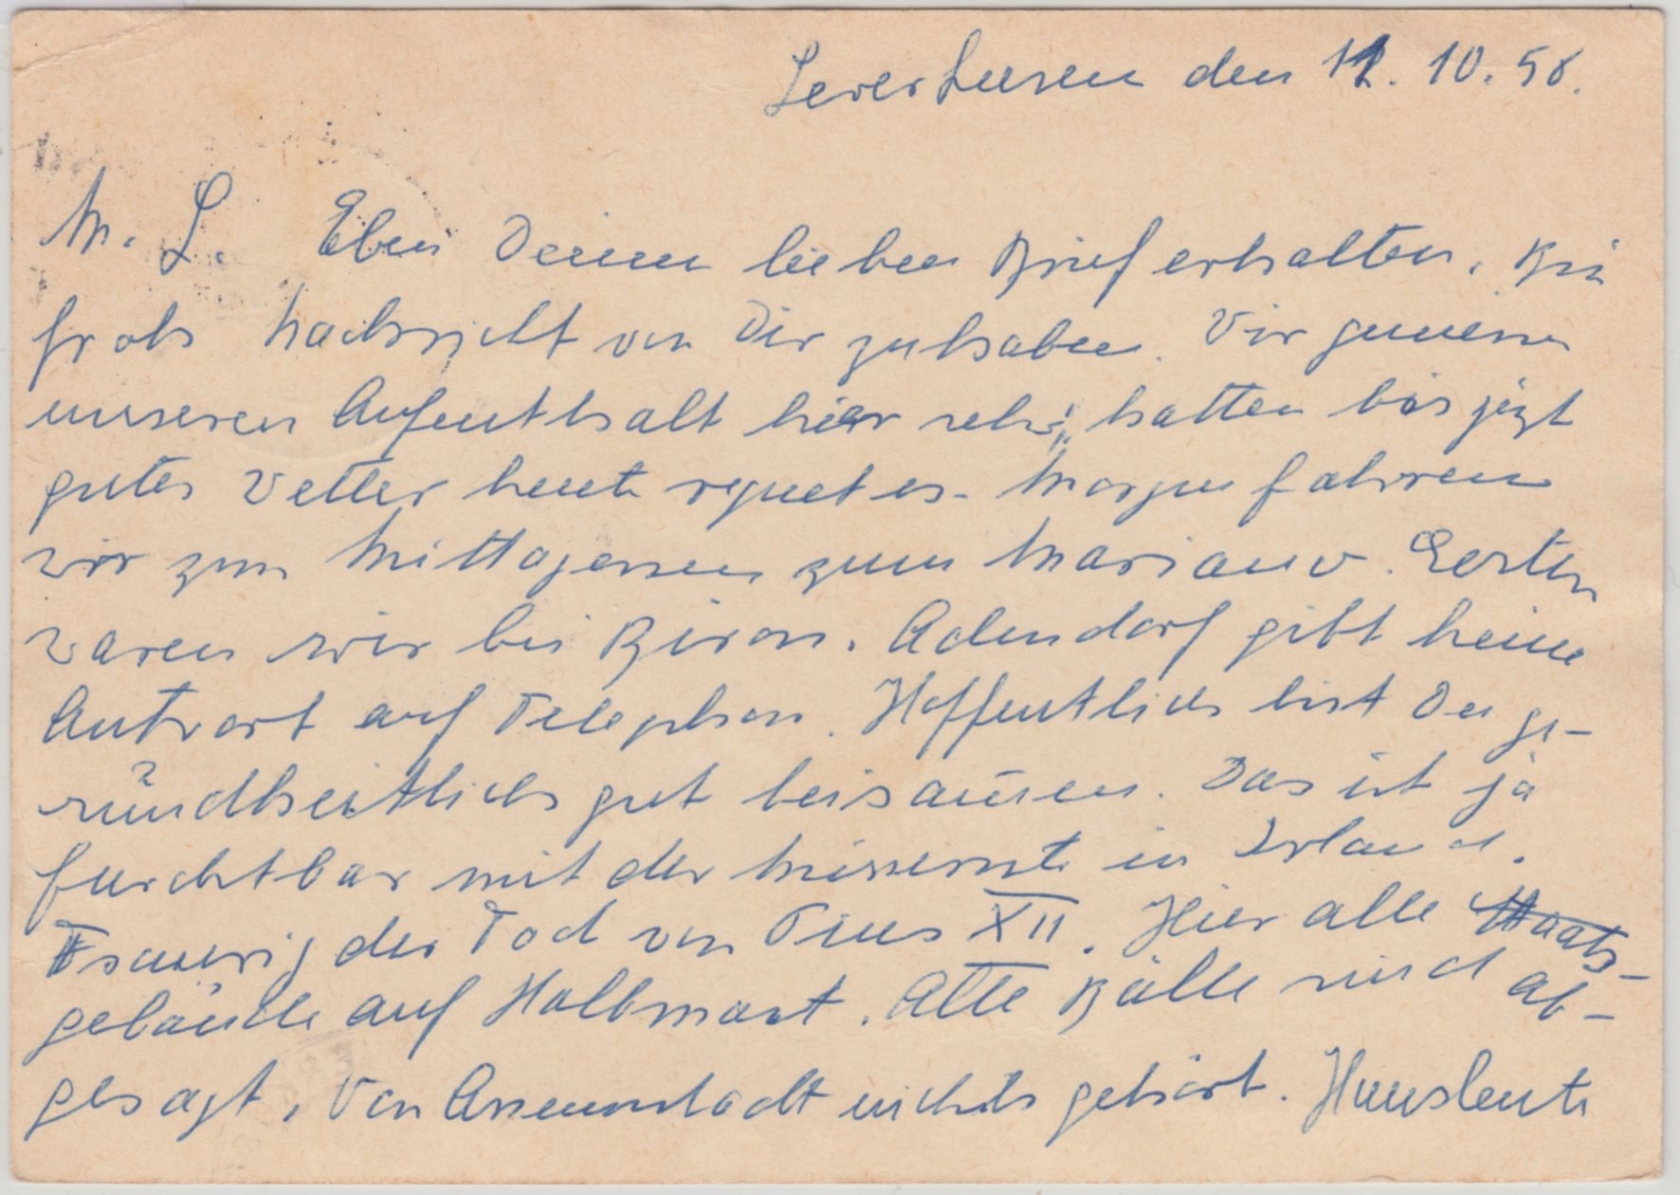 Leverkusen den 12. 10. 58.
M. L. Eben Deinen lieben Brief erhalten. Bin
froh Nachricht von Dir zu haben. Wir geniessen
unseren Aufenthalt hier sehr, hatten bis jezt
gutes Wetter heute regnet es. Morgen fahren
wir zum Mittagessen zum Gestern
waren wir bei Biron. Adendorf gibt keine
Antwort auf Telephon. Hoffentlich bist Du ge-
sundheitlich gut beisam̄en. Das ist ja
furchtbar mit der Missernte in Irland.
Traurig der Tod von Pius XII. Hier alle Staats-
gebäude auf Halbmast. Alle Bälle sind ab-
gesagt. Von nichts gehört. Hausleute